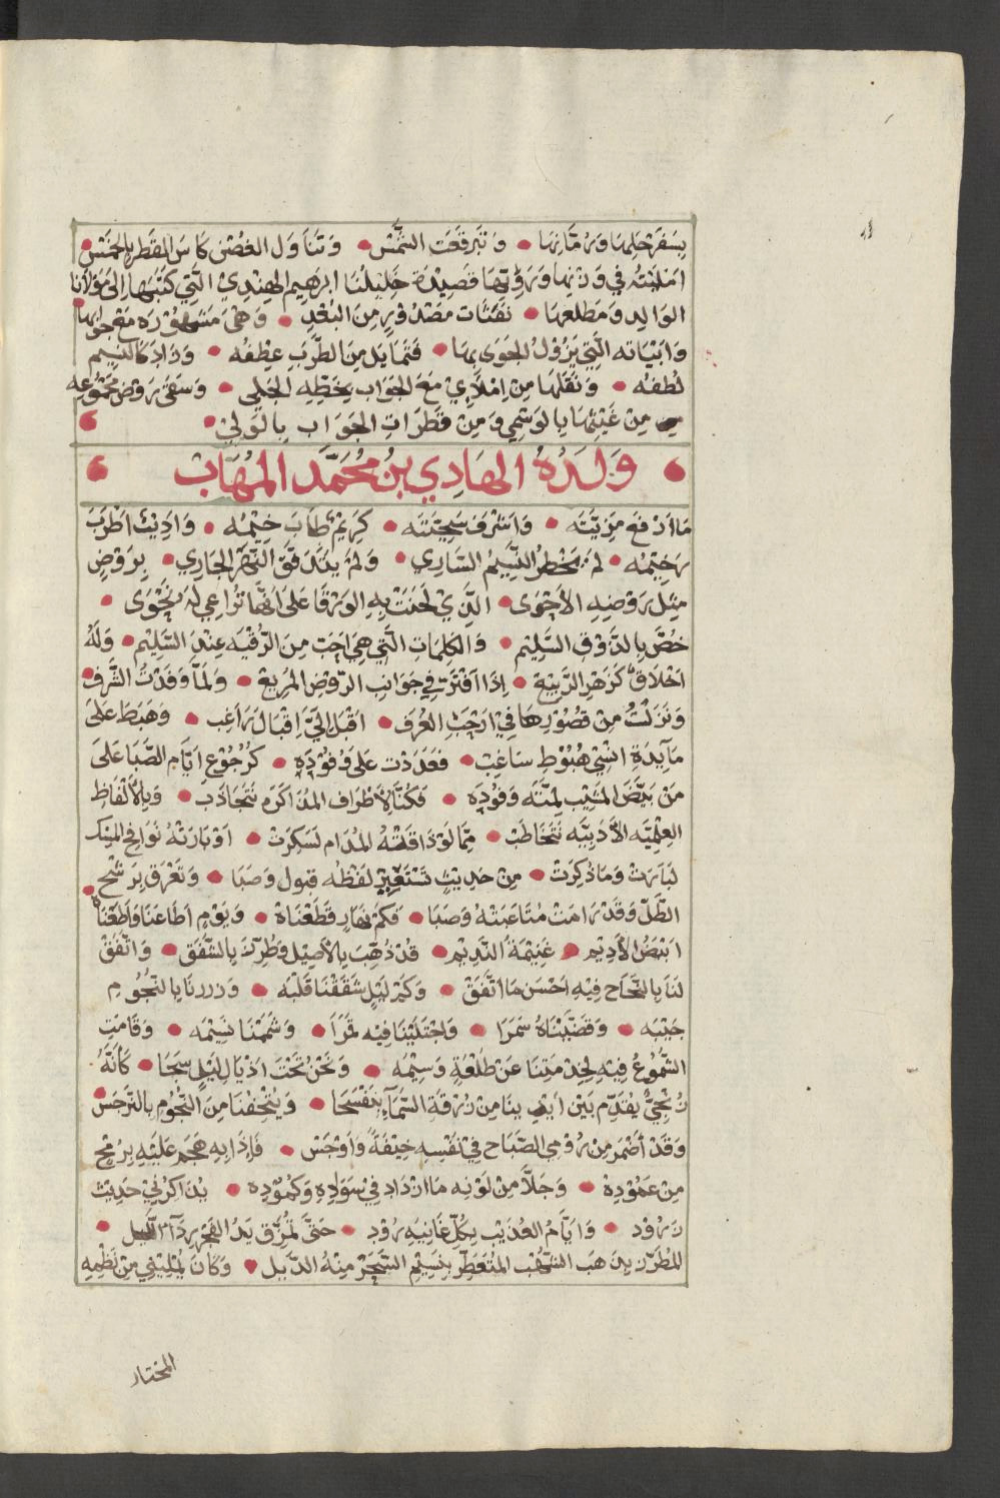 بسفر حليها وزمانها • وتبرقعت الشمس • وتناول الغصن كاس القطر بالخمس •
امليته في وزنها ورويها قصيدة خليلنا ابرهيم الهندي التي كتبها الى مولانا
الوالد ومطلعها • نفثات مصدور من البعد • وهي مشهوره مع جوابها
وابياته التي يزول الجوى بها • فتمايل من الطرب عطفه • وزاد كالنسيم
لطفه • ونقلها من املاءي مع الجواب بخطه الجلي • وسقى روض مجموعه
من غيثها بالوسمي ومن قطرات الجواب بالولي •
• ولده الهادي بن محمد المهاب •
ما ارفع مزيته • واشرف سجيته • كريم طاب خيمه • واديب اطرب
رخيمه • لم يخطر النسيم الساري • ولم يتدفق النهر الجاري • بروض
مثل روضه الاحوى • الذي لحنت به الورقا على انها تراعي له نجوى •
خص بالذوق السليم • والكلمات التي هي احب من الرقيه عند السليم • وله
اخلاق كزهر الربيع • اذا افترت في جوانب الروض المريع • ولما وفدت الشرف •
ونزلت من قصورها في ارحب الغرف • اقبل اليّ اقبال راغب • وهبط على
مآيدة انسي هبوط ساغب • فعددت علي وفوده • كرجوع ايام الصبا على
من بيض المشيب لمته وفوده • فكنا لاطراف المذاكره نتجاذب • وبالالفاظ
العلميه الادبيه نتخاطب • مما لو ذاقته المدام لسكرت • او بارته نوافج المسك
لبارت وما ذكرت • من حديث تستعير لفظه قبول وصبا • وتغرق برشح •
الطل وقد رامت متاعبته وصبا • فكم نهار قطعناه • ويوم اطاعنا واطعناه •
ابيض الاديم • غنيمة النديم • قد ذهب بالاصيل وطرز بالشفق • واتفق
لنا بالنجاح فيه احسن ما اتفق • وكم ليل شققنا قلبه • وزررنا بالنجوم
جيبه • وقضيناه سمرا • واجتلينا فيه قمرا • وشممنا نسيمه • وقامت
الشموع فيه لخدمتنا عن طلعة وسيمه • ونحن تحت اذيال ليل سجا • كانه
زنجي يقدم بين ايدينا من زرقة السماء بنفسجا • ويتحفنا من النجوم بالنرجس •
وقد اضمر من رومي الصباح في نفسه خيفة واوجس • فاذا به هجم عليه برمح
من عموده • وجلا من لونه ما ازداد في سواده وكموده • يذاكرني حديث
زرود • وايام العذيب بكل غانيه رود • حتى تمزق يد الفجر رداء الليل •
المطرز بذهب الشهب المتعطر بنسيم الشجر منه الذيل • وكان يمليني من نظمه
المختار